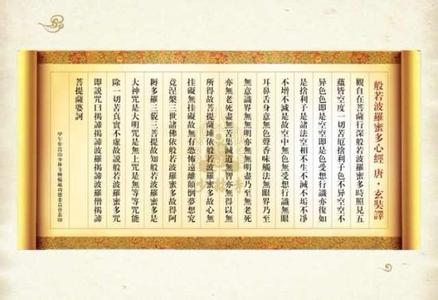 般若波羅蜜多心經 唐·玄奘譯
觀自在菩薩行深般若波羅蜜多時照見五
蘊皆空度一切苦厄捨利子色不异空空不
异色色即是空空即是色受想行識亦復如
是捨利子是諸法空相不生不滅不垢不凈
不增不減是故空中無色無受想行識無眼
耳鼻舌身意無色聲香味觸法無眼界乃至
無意識界無無明亦無無明盡乃至無老死
亦無老死盡無苦集滅道無智亦無得以無
所得故菩提薩埵依般若波羅蜜多故心無
挂礙無挂礙故無有恐怖遠離顛倒夢想究
竟涅槃三世諸佛依般若波羅蜜多故得阿
耨多羅三藐三菩提故知般若波羅蜜多是
大神咒是大明咒是無上咒是無等等咒能
除一切苦真實不虛故說般若波羅蜜多咒
即說咒曰揭諦揭諦波羅揭諦波羅僧揭諦
菩提薩婆訶